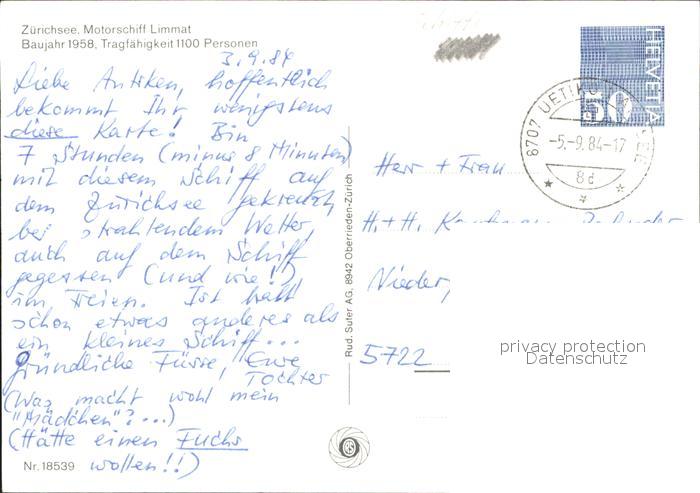 Zürichsee, Motorschiff Limmat
Baujahr 1958, Tragfähigkeit 1100 Personen
3.9.84
Liebe Antiken, hoffentlich
bekommt Ihr wenigstens
diese Karte! Bin
7 Stunden (minus 8 Minuten)
mit diesem Schiff auf
dem Zürichsee gekreuzt,
bei strahlendem Wetter,
auch auf dem Schiff
gegessen (und wie!!)
im Freien. Ist halt
schon etwas anderes als
ein kleines Schiff...
gründliche Füsse, Eure
Tochter
(Was macht wohl mein
"Mädchen"?...)
(Hätte einen Fuchs
wollen!!)
Nr. 18539
Rud. Suter AG, 8942 Oberrieden-Zürich
HELVETIA
50
8707 UETIKON A SEE
-5.-9.84-17
8d
Herr + Frau
H. + H.
Nieder
5722
privacy protection
Datenschutz